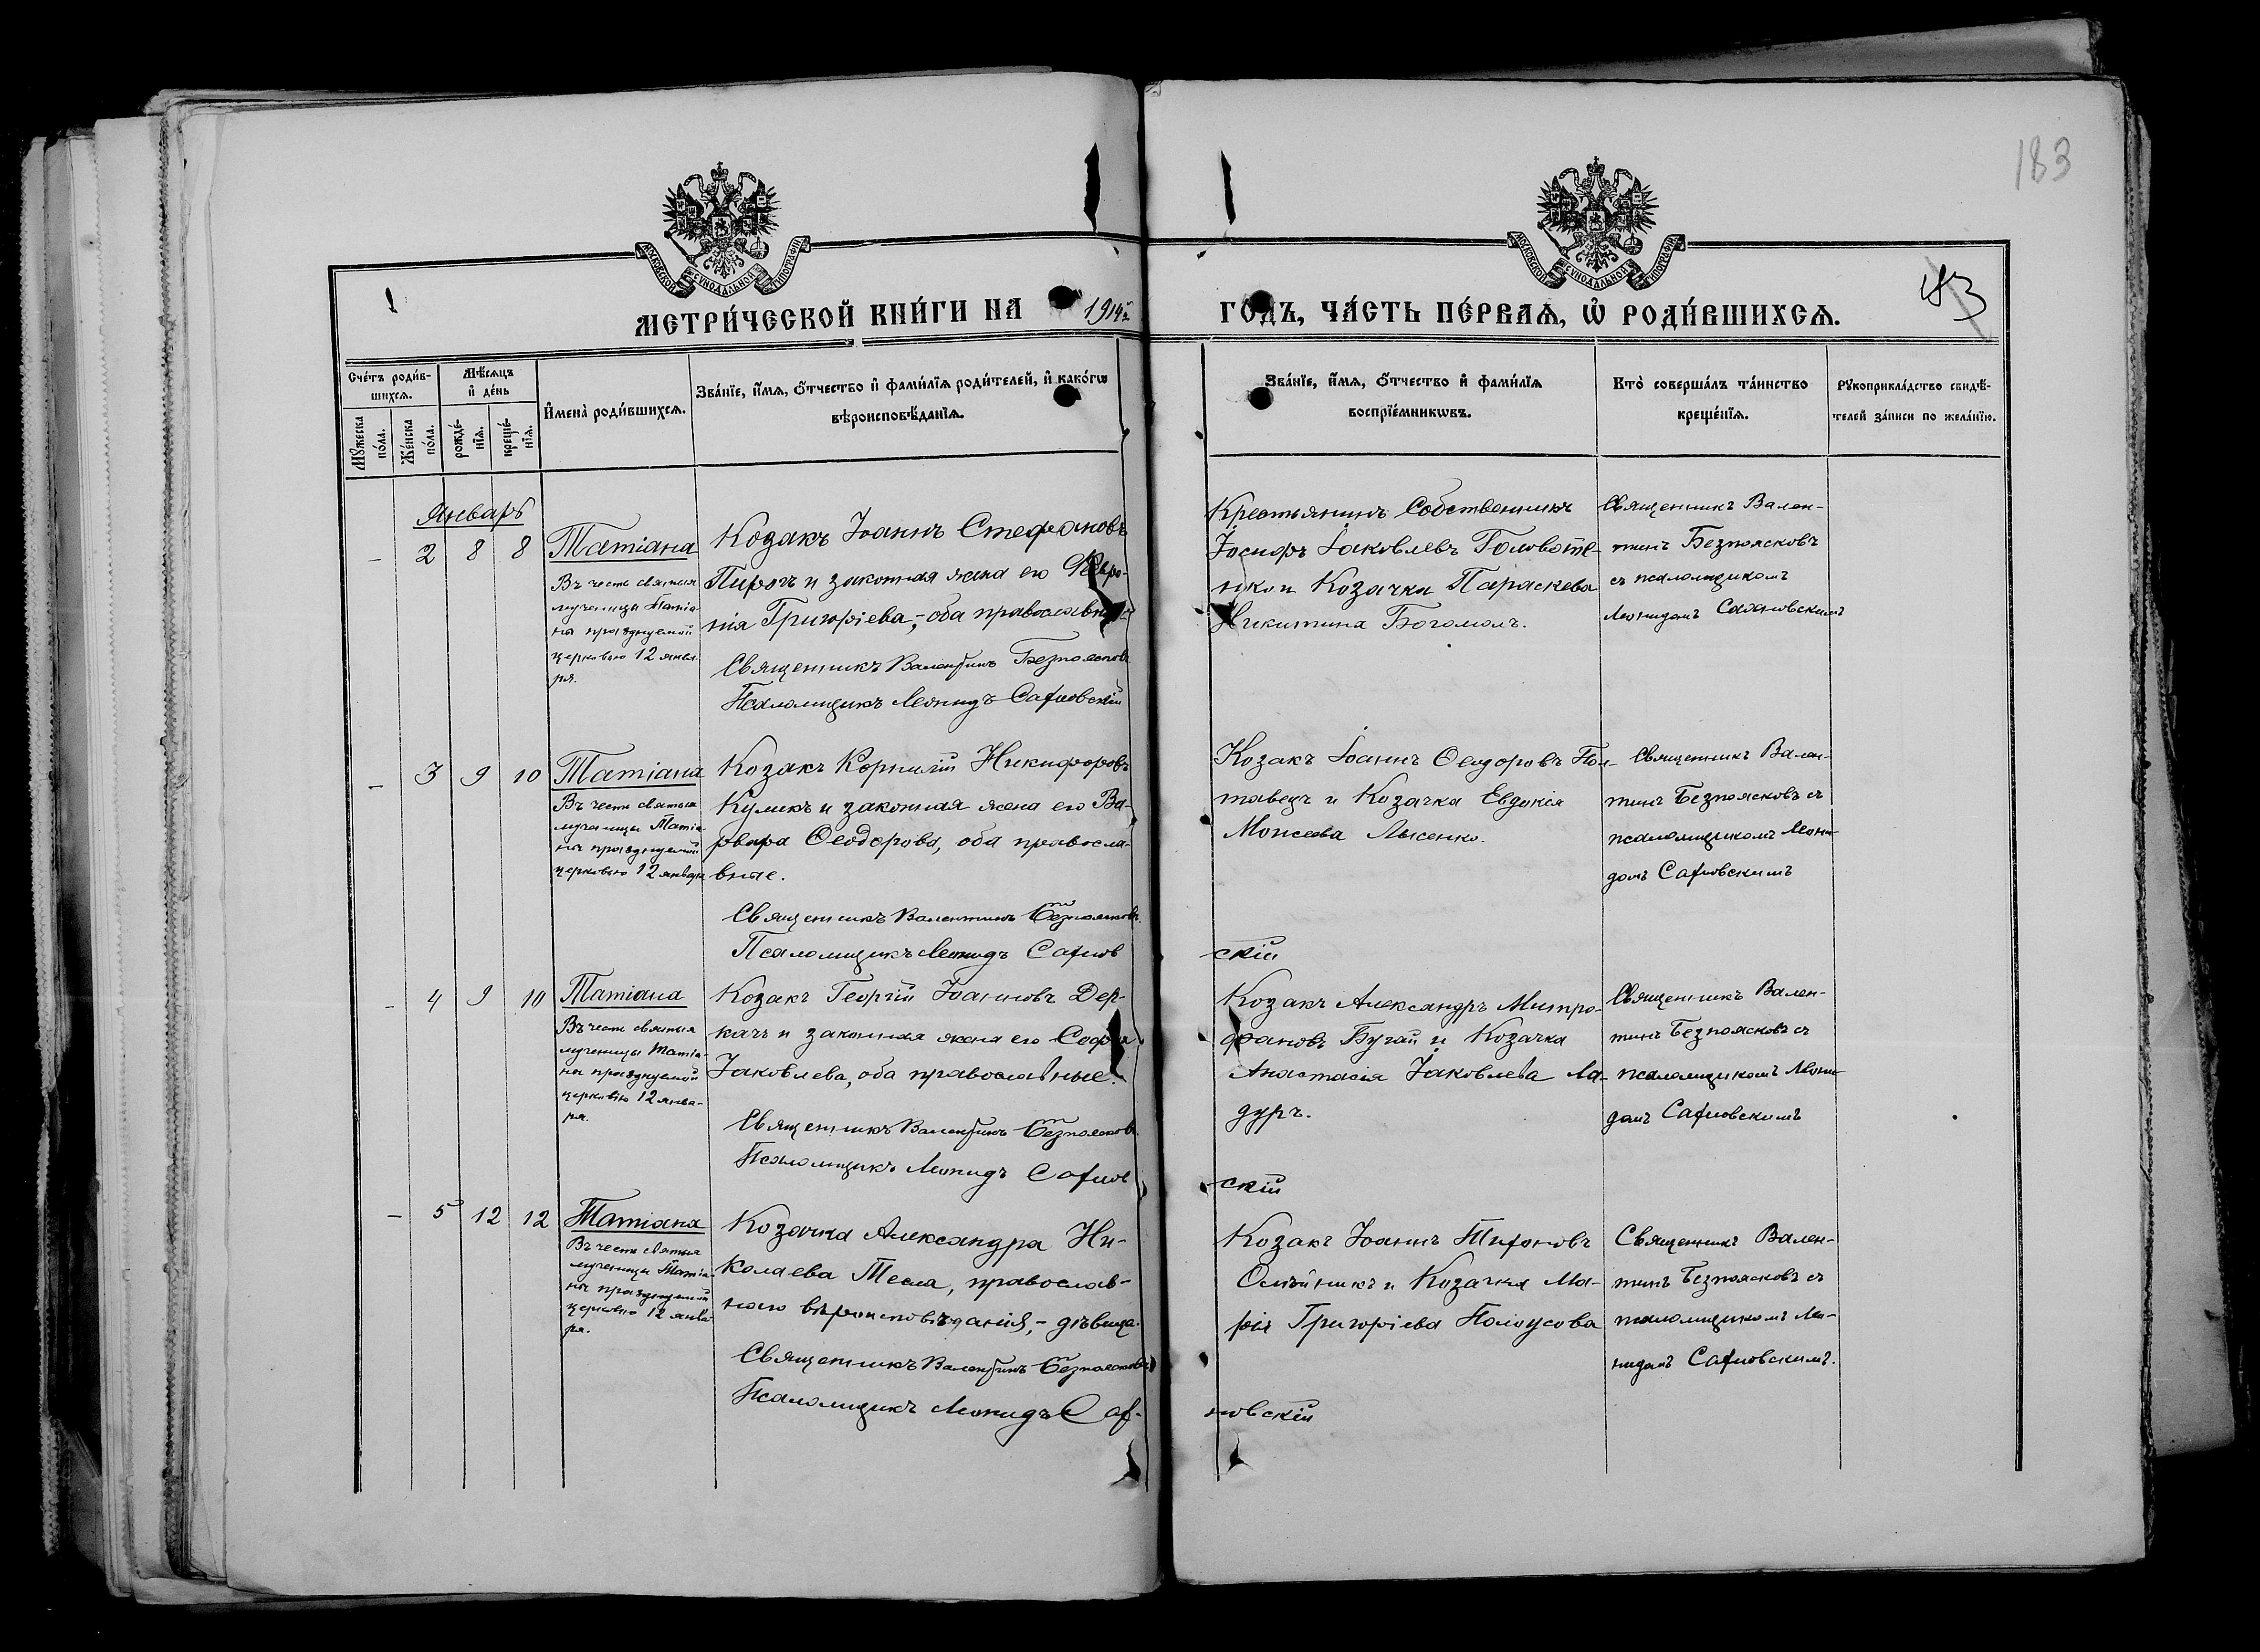 183
МОСКОВСКОЙ СУНОДАЛЬНОЙ ТИПОГРАФІИ
МОСКОВСКОЙ СУНОДАЛЬНОЙ ТИПОГРАФІИ
МЕТРИ́ЧЕСКОЙ КНИ́ГИ НА 1914й
ГОДЪ, ЧА́СТЬ ПЕ́РВАѦ, Ѡ҆ РОДИ́ВШИХСѦ.
183
Сче́тъ роди́в-
шихсѧ.
Мѣ́сѧцъ
и҆ де́нь
Мꙋ́жеска
по́ла.
Же́нска
по́ла.
рожде́-
нїѧ.
креще́-
нїѧ.
И҆мена̀ роди́вшихсѧ.
Зва́нїе, и҆́мѧ, ѻ҆́тчество и҆ фами́лїѧ роди́телей, и҆ како́гѡ
вѣроисповѣ́данїѧ.
Зва́нїе, и҆́мѧ, ѻ҆́тчество и҆ фами́лїѧ
воспрїе́мникѡвъ.
Кто̀ соверша́лъ та́инство
креще́нїѧ.
Рꙋкоприкла́дство свидѣ́-
телей за́писи по жела́нїю.
Январь
- 2 8 8
Татіана
Въ честь святыя
мученицы Татіа-
ны празднуемой
церковью 12 янва-
ря.
Козакъ Іоаннъ Стефановъ
Пирогъ и законная жена его Февро-
нія Григоріева,- оба православные
Священникъ Валентинъ Безпоясковъ
Псаломщикъ Леонидъ Сахновскій
Крестьянинъ Собственникъ
Іосифъ Іаковлевъ Головате-
нко и Козачка Параскева
Никитина Богомолъ.
Священникъ Вален-
тинъ Безпоясковъ
съ псаломщикомъ
Леонидомъ Сахновскимъ
- 3 9 10
Татіана
Въ честь святыя
мученицы Татіа-
ны празднуемой
церковью 12 января
Козакъ Корнилій Никифоровъ
Куликъ и законная жена его Ва-
рвара Ѳеодорова, оба правосла-
вные.
Священникъ Валентинъ Безпоясковъ.
Псаломщикъ Леонидъ Сахнов
скій
Козакъ Іоаннъ Ѳеодоровъ Пол-
тавецъ и Козачка Евдокія
Моисеева Лысенко.
Священникъ Вален-
тинъ Безпоясковъ съ
псаломщикомъ Леони-
домъ Сахновскимъ
- 4 9 10
Татіана
Въ честь святыя
мученицы Татіа-
ны празднуемой
церковію 12 янва-
ря.
Козакъ Георгій Іоанновъ Дер-
качъ и законная жена его Софія
Іаковлева, оба православные.
Священникъ Валентинъ Безпоясковъ.
Псаломщикъ Леонидъ Сахнов
скій
Козакъ Александръ Митро-
фановъ Бугай и Козачка
Анастасія Іаковлева Ла-
дуръ.
Священникъ Вален-
тинъ Безпоясковъ съ
псаломщикомъ Леони-
домъ Сахновскимъ
- 5 12 12
Татіана
Въ честь святыя
мученицы Татіа-
ны празднуемой
церковью 12 янва-
ря.
Козачка Александра Ни-
колаева Тесла, православ-
наго вѣроисповѣданія,- дѣвица.
Священникъ Валентинъ Безпоясковъ
Псаломщикъ Леонидъ Сах-
новскій
Козакъ Іоаннъ Тихоновъ
Олейникъ и Козачка Ма-
рія Григоріева Полоусова
Священникъ Вален-
тинъ Безпоясковъ съ
псаломщикомъ Лео-
нидомъ Сахновскимъ.